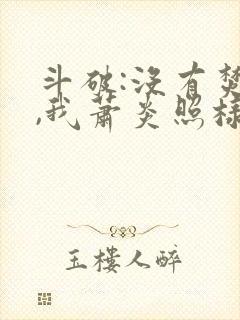 斗破:没有焚
,我萧炎照样
玉楼人醉